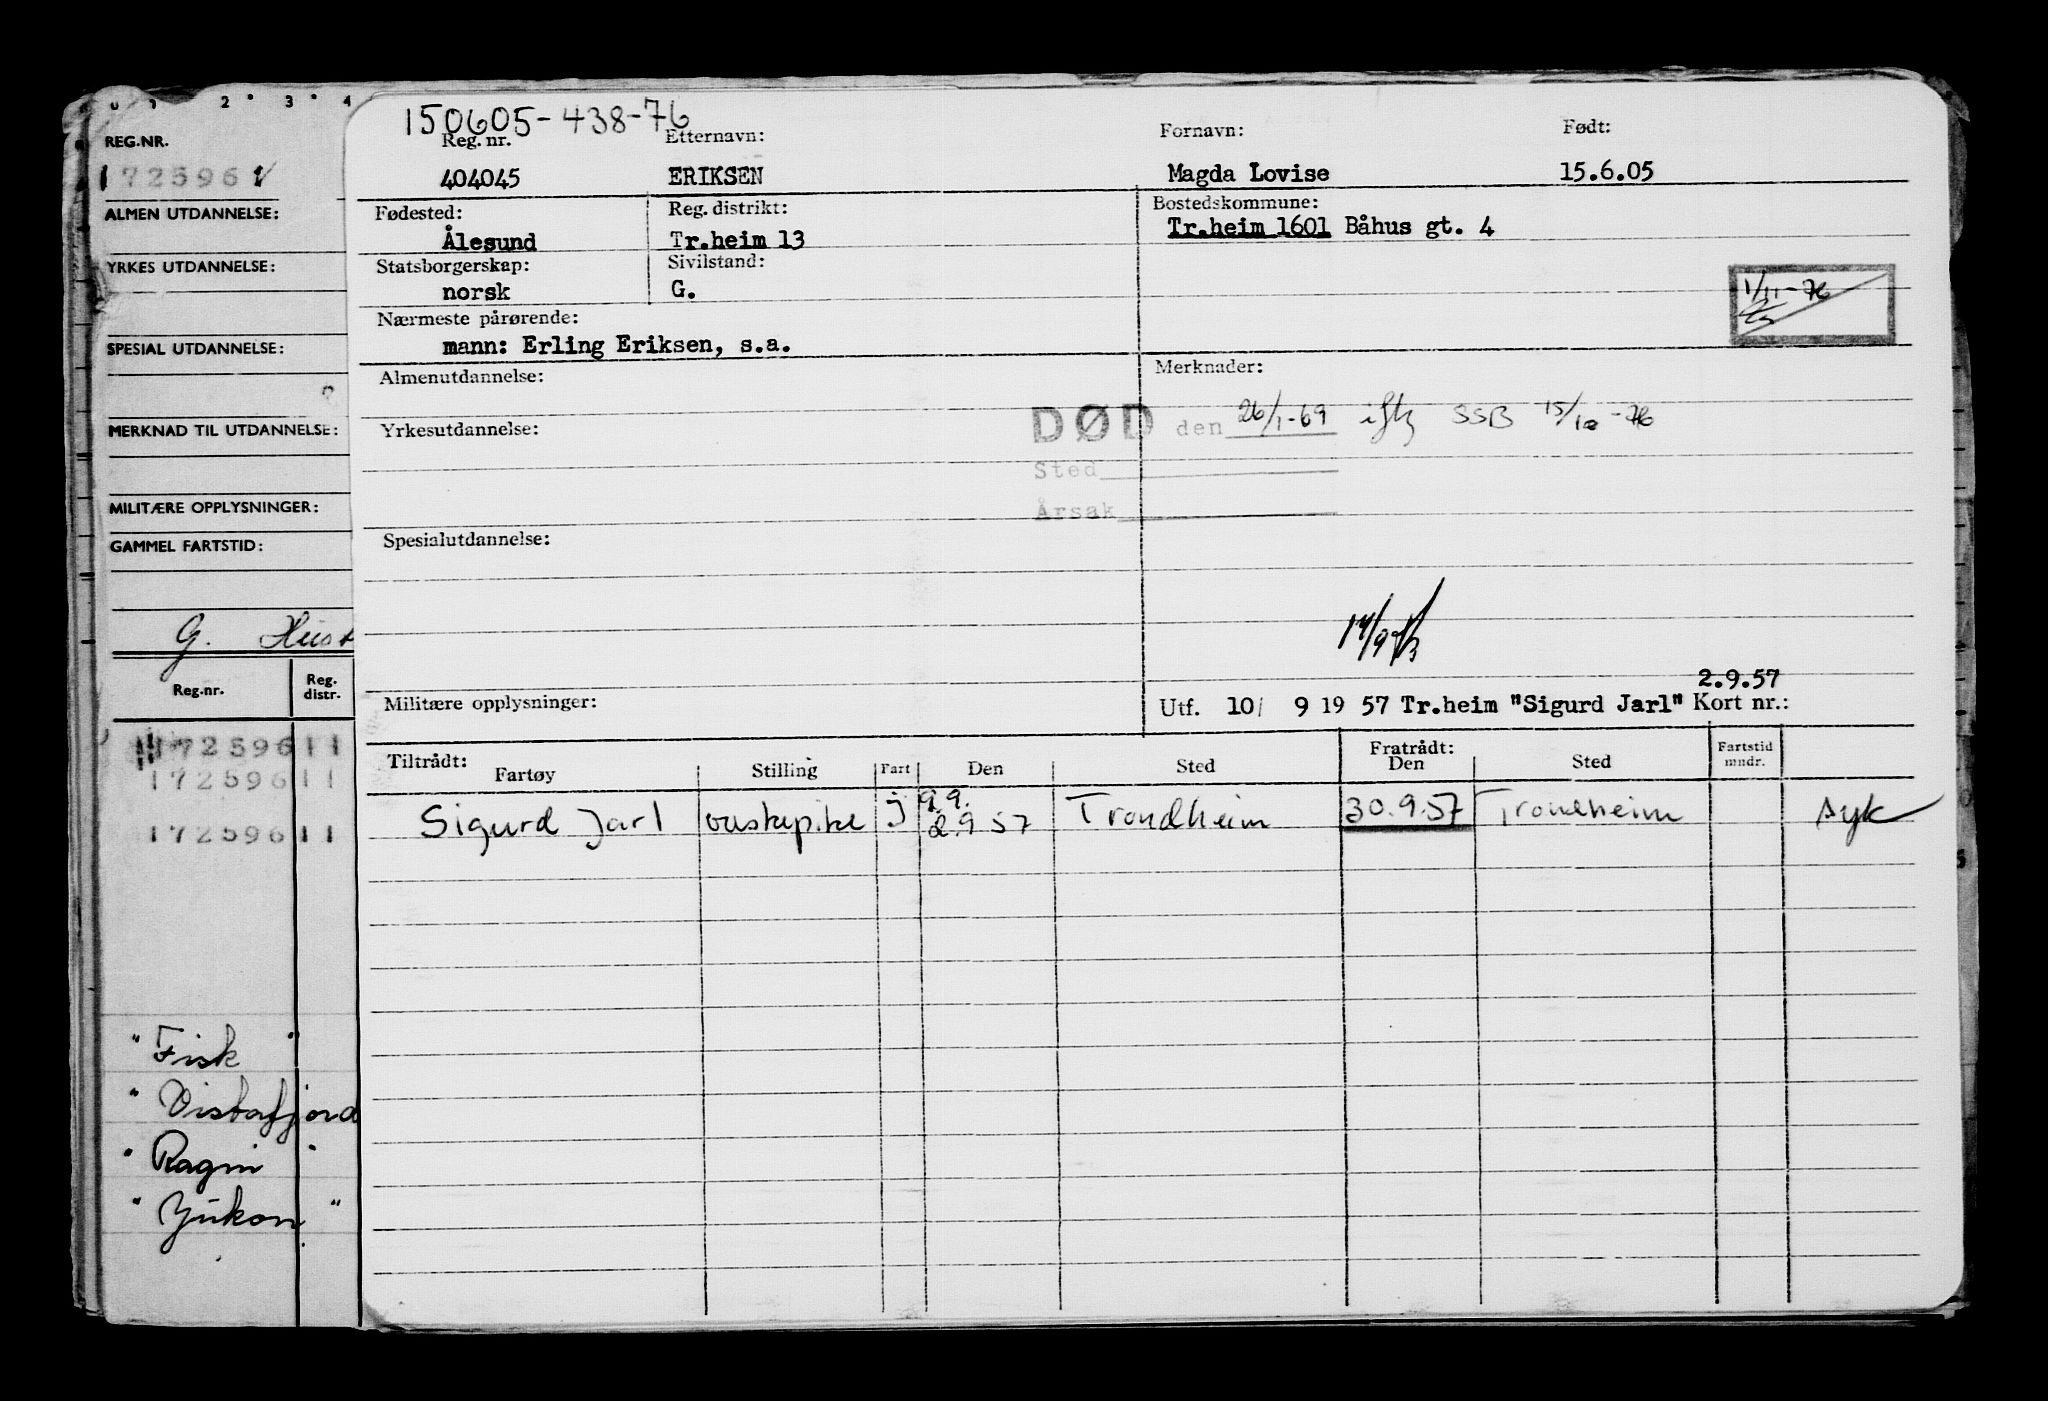 2 3 4
REG.NR.
1725961
ALMEN UTDANNELSE:
YRKES UTDANNELSE:
SPESIAL UTDANNELSE:
MERKNAD TIL UTDANNELSE:
MILITÆRE OPPLYSNINGER:
GAMMEL FARTSTID:
G.
Reg.nr. Reg. distr.
172596 11
172596 11
172596 11
" Fisk "
" Vistafjord
" Ragni "
" Yukon "
150605-438-76
Reg. nr. Etternavn: Fornavn: Født:
404045 ERIKSEN Magda Lovise 15.6.05
Fødested: Reg. distrikt: Bostedskommune:
Ålesund Tr.heim 13 Tr.heim 1601 Båhus gt. 4
Statsborgerskap: Sivilstand:
norsk G.
1/11-76
Nærmeste pårørende:
mann: Erling Eriksen, s.a.
Almenutdannelse: Merknader:
DØD den 26/1-69 iflg SSB 15/10-76
Yrkesutdannelse:
Sted
Årsak
Spesialutdannelse:
2.9.57
Militære opplysninger: Utf. 10/ 9 19 57 Tr.heim "Sigurd Jarl" Kort nr.:
Tiltrådt: Fratrådt:
Fartøy Stilling Fart Den Sted Den Sted Fartstid mndr.
9.9.
Sigurd Jarl vaskepike j 2.9 57 Trondheim 30.9.57 Trondheim syk